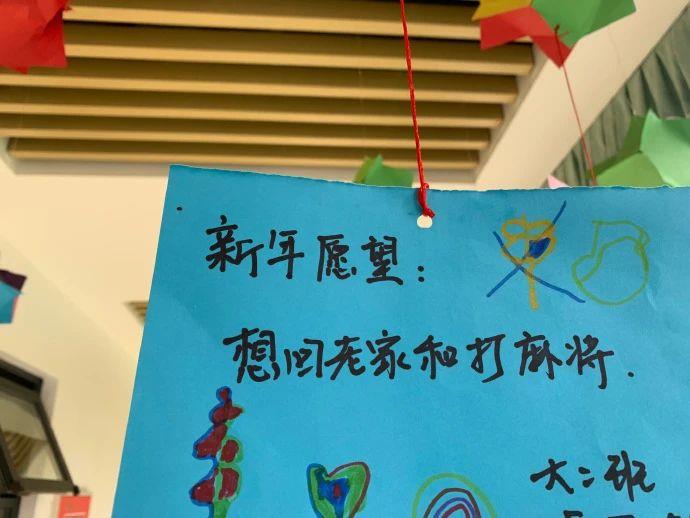 新年愿望：
想回老家和打麻将.
大二班